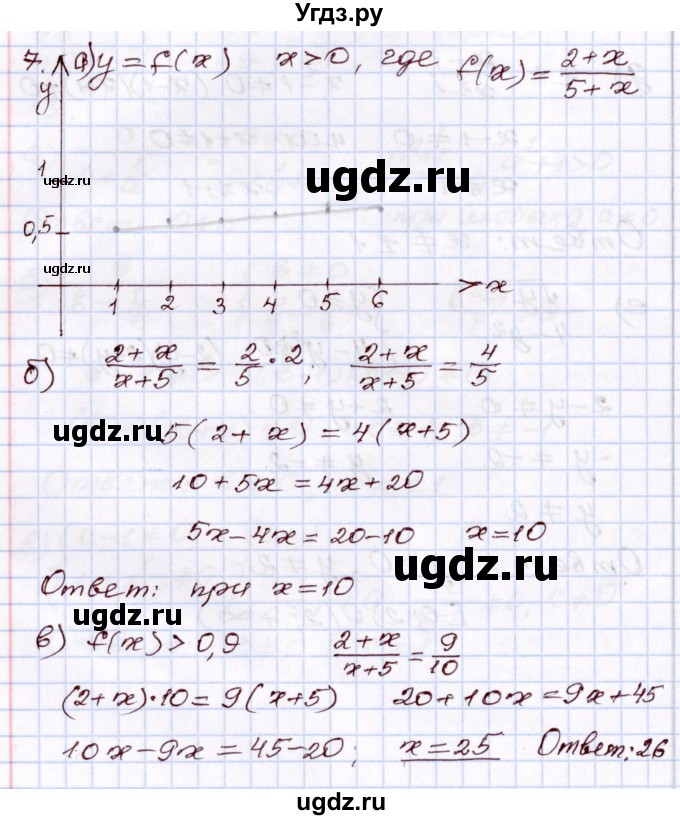 Угдз.ру
7. а) y = f(x)   x > 0, где   f(x) = (2+x)/(5+x)
y
1
ugdz.ru
ugdz.ru
0,5
ugdz.ru
1 2 3 4 5 6 x
б) (2+x)/(x+5) = 2/5 · 2;   (2+x)/(x+5) = 4/5
ugdz.ru
5(2+x) = 4(x+5)
10+5x = 4x+20
5x-4x = 20-10   x=10
ugdz.ru
Ответ: при x=10
ugdz.ru
в) f(x) > 0,9   (2+x)/(x+5) = 9/10
(2+x)·10 = 9(x+5)   20+10x = 9x+45
10x-9x = 45-20;   x=25   Ответ: 26
ugdz.ru